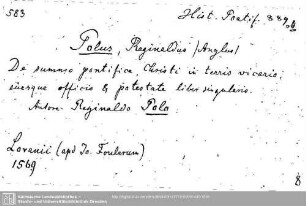 583
Hist. Pontif. 889, b
Polus, Reginaldus /Anglus/
De summo pontifice, Christi in terris vicario,
eiusque officio & potestate liber singularis.
Autore Reginaldo Polo
Lovanii (apd Jo. Foulerum)
1569
8